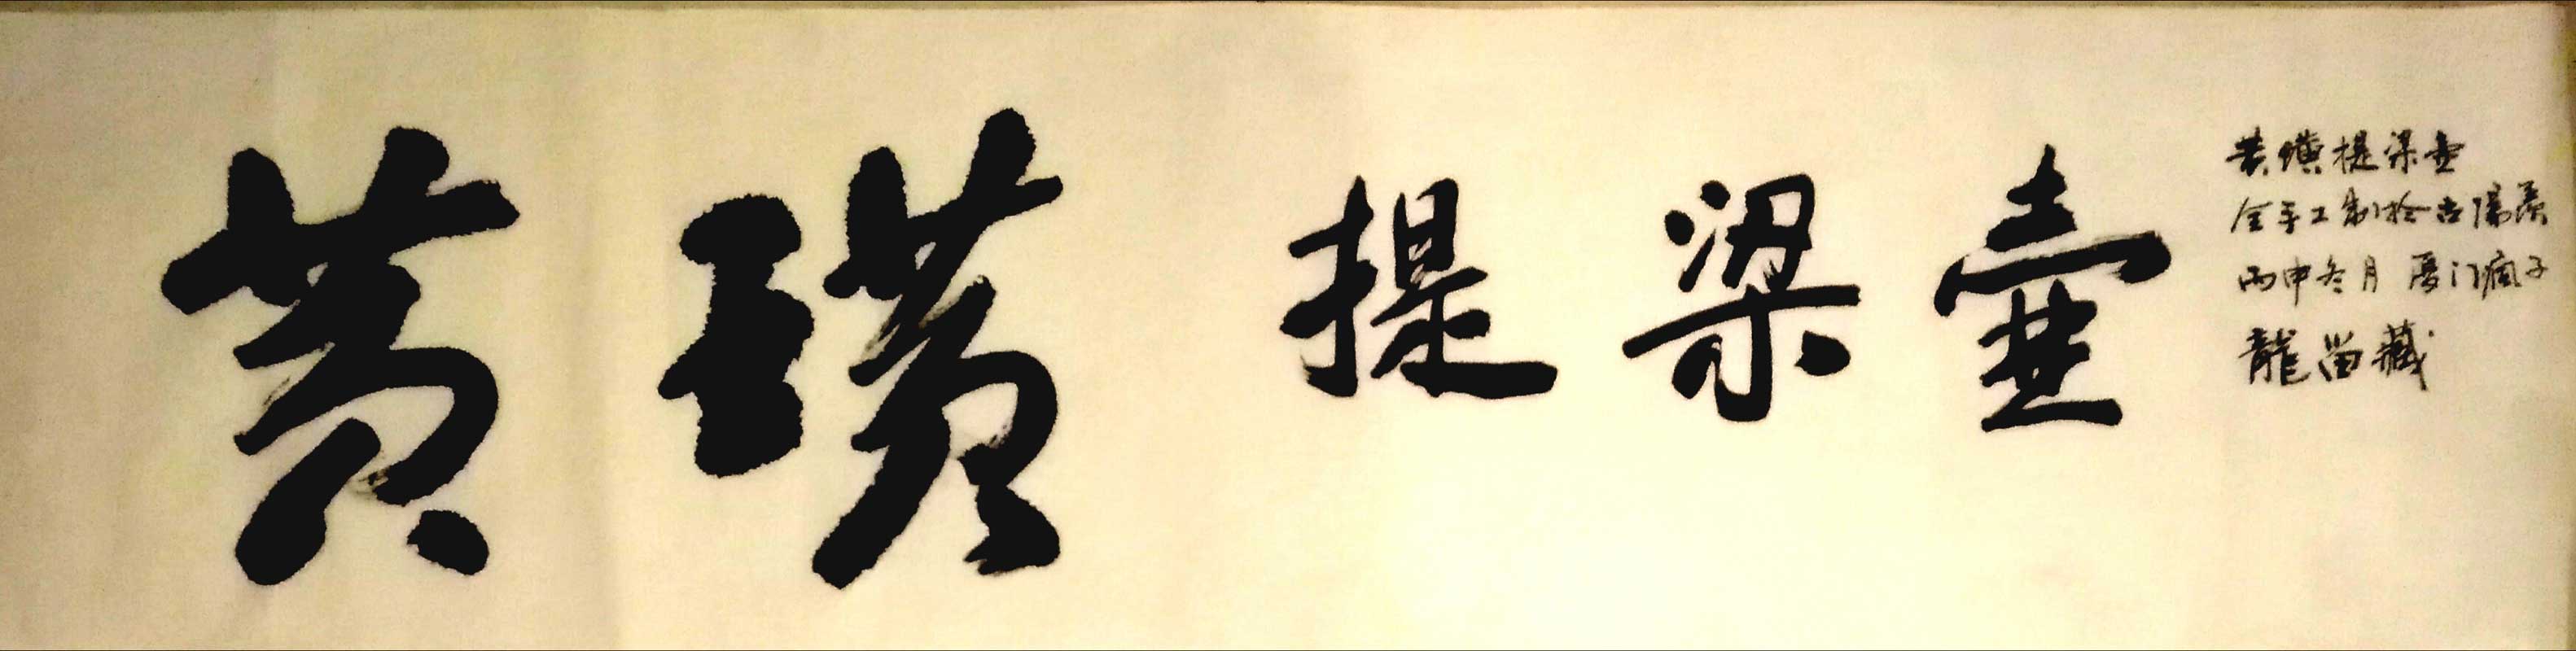 黄璜提梁壶
黄璜提梁壶
全手工制于古陽羨
丙申冬月 厦门瘋子
龍留藏